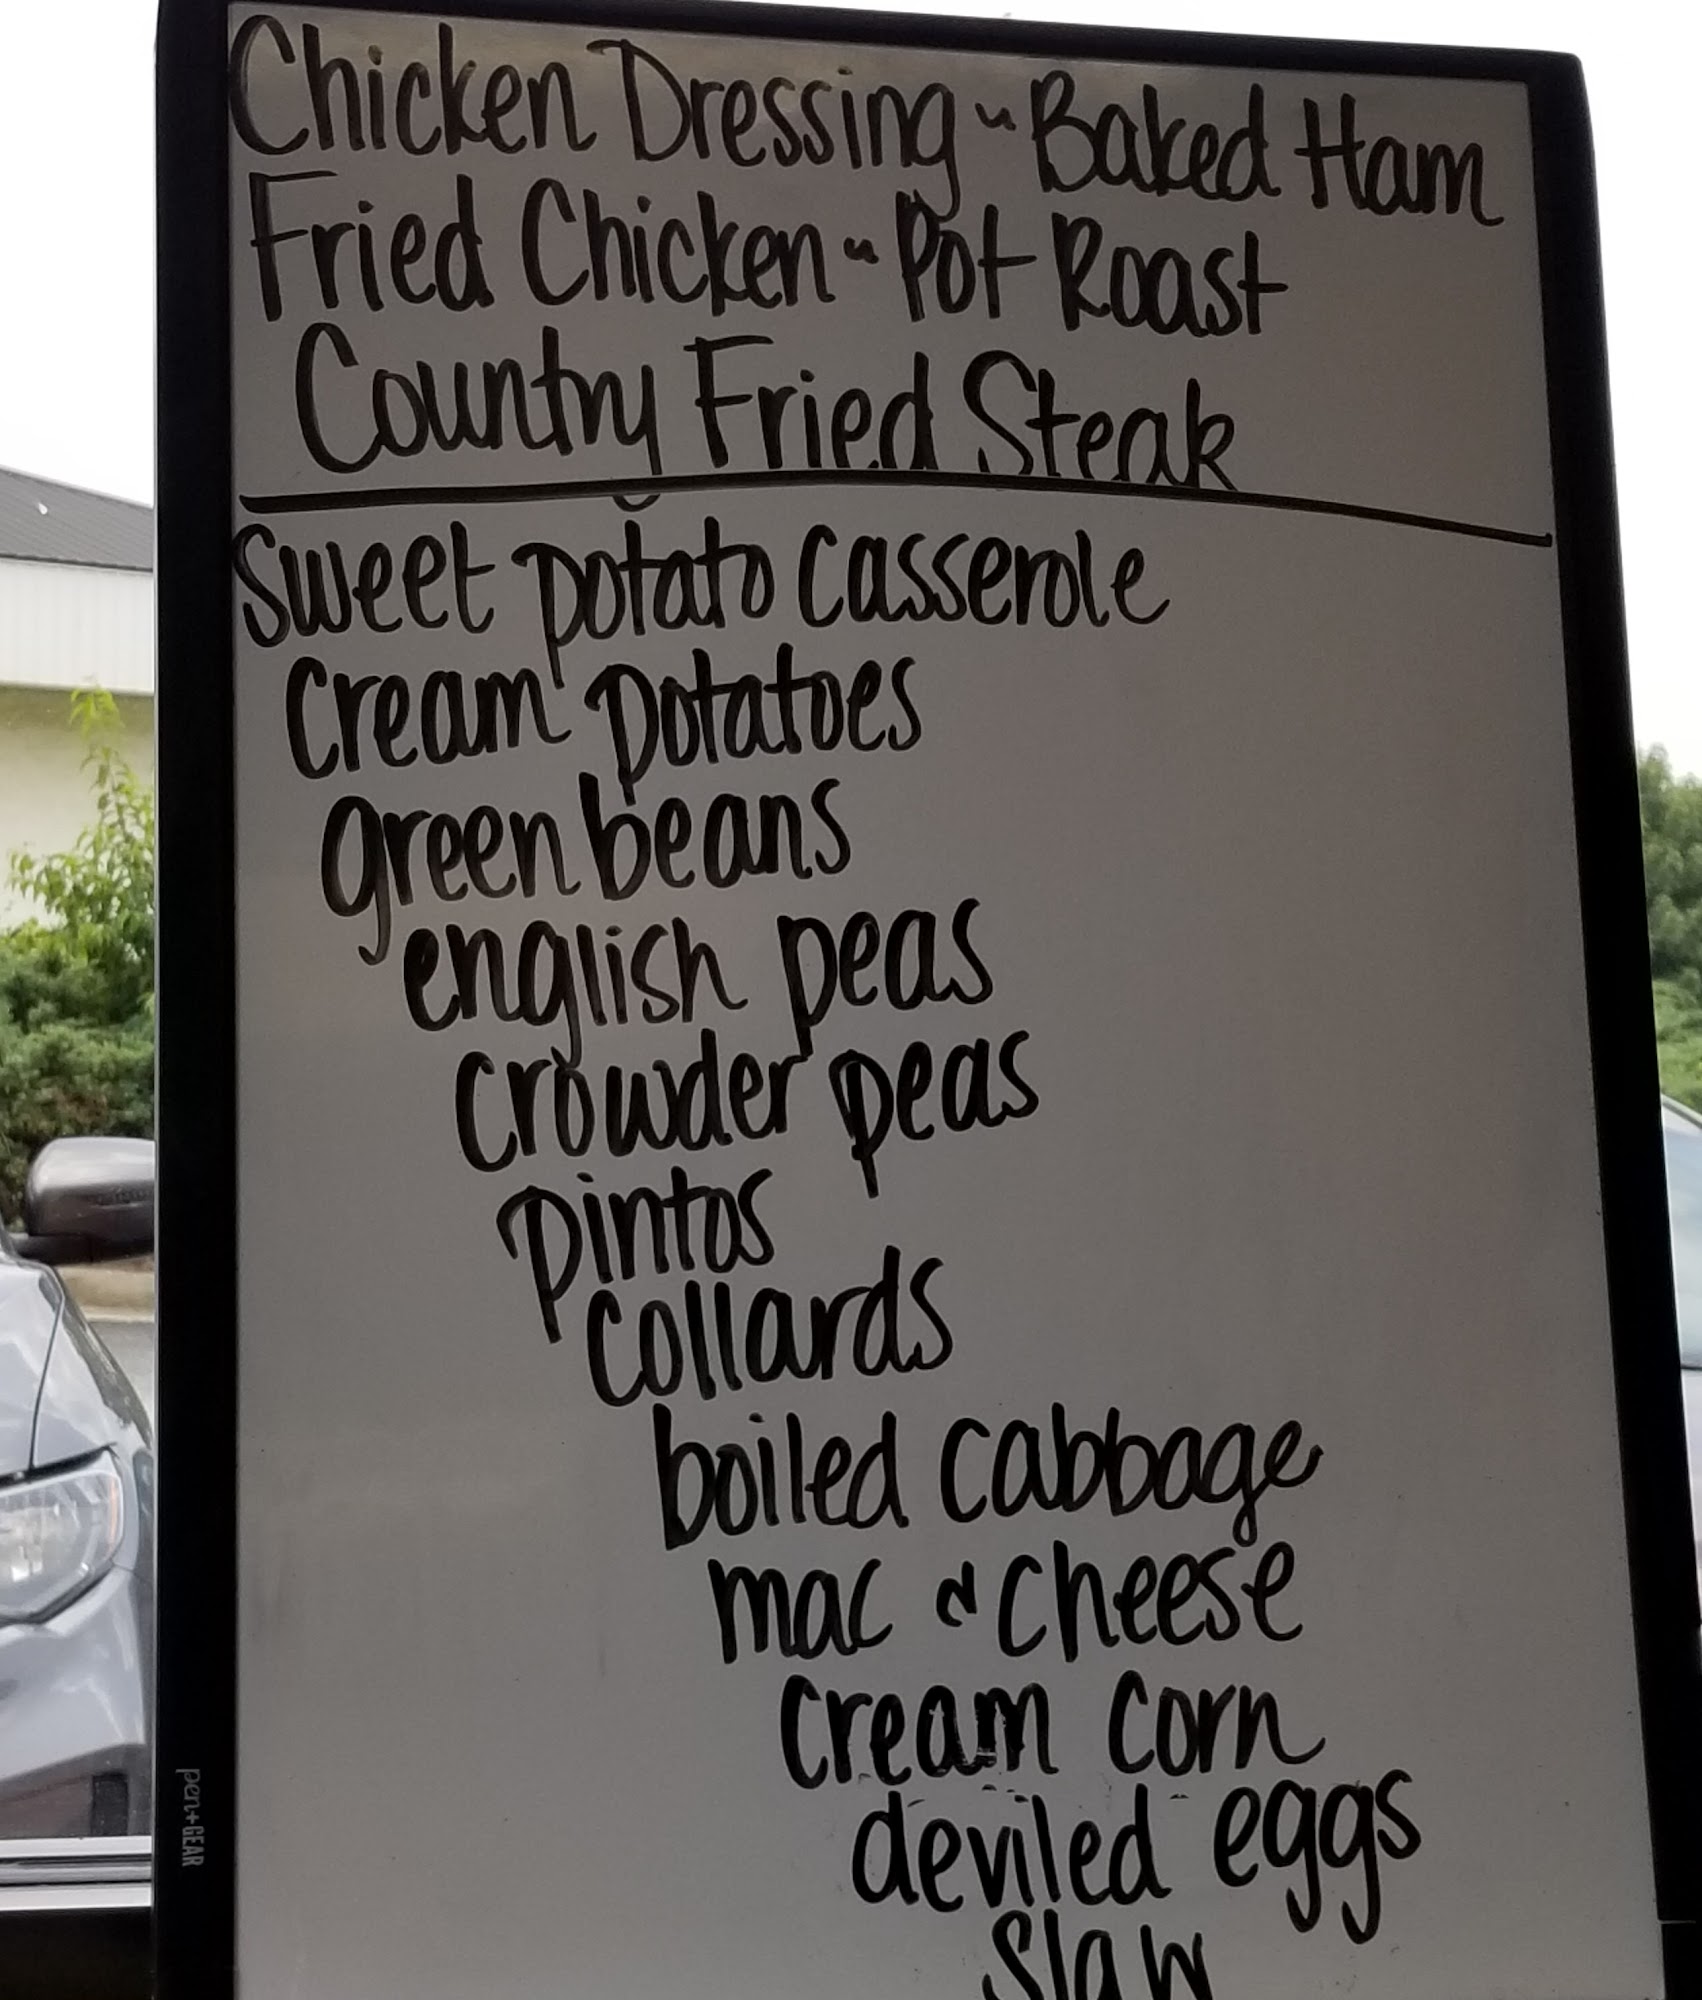 Chicken Dressing ~ Baked Ham
Fried Chicken ~ Pot Roast
Country Fried Steak
Sweet potato casserole
cream potatoes
green beans
english peas
crowder peas
pintos
collards
boiled cabbage
mac & cheese
cream corn
deviled eggs
slaw
pen+GEAR